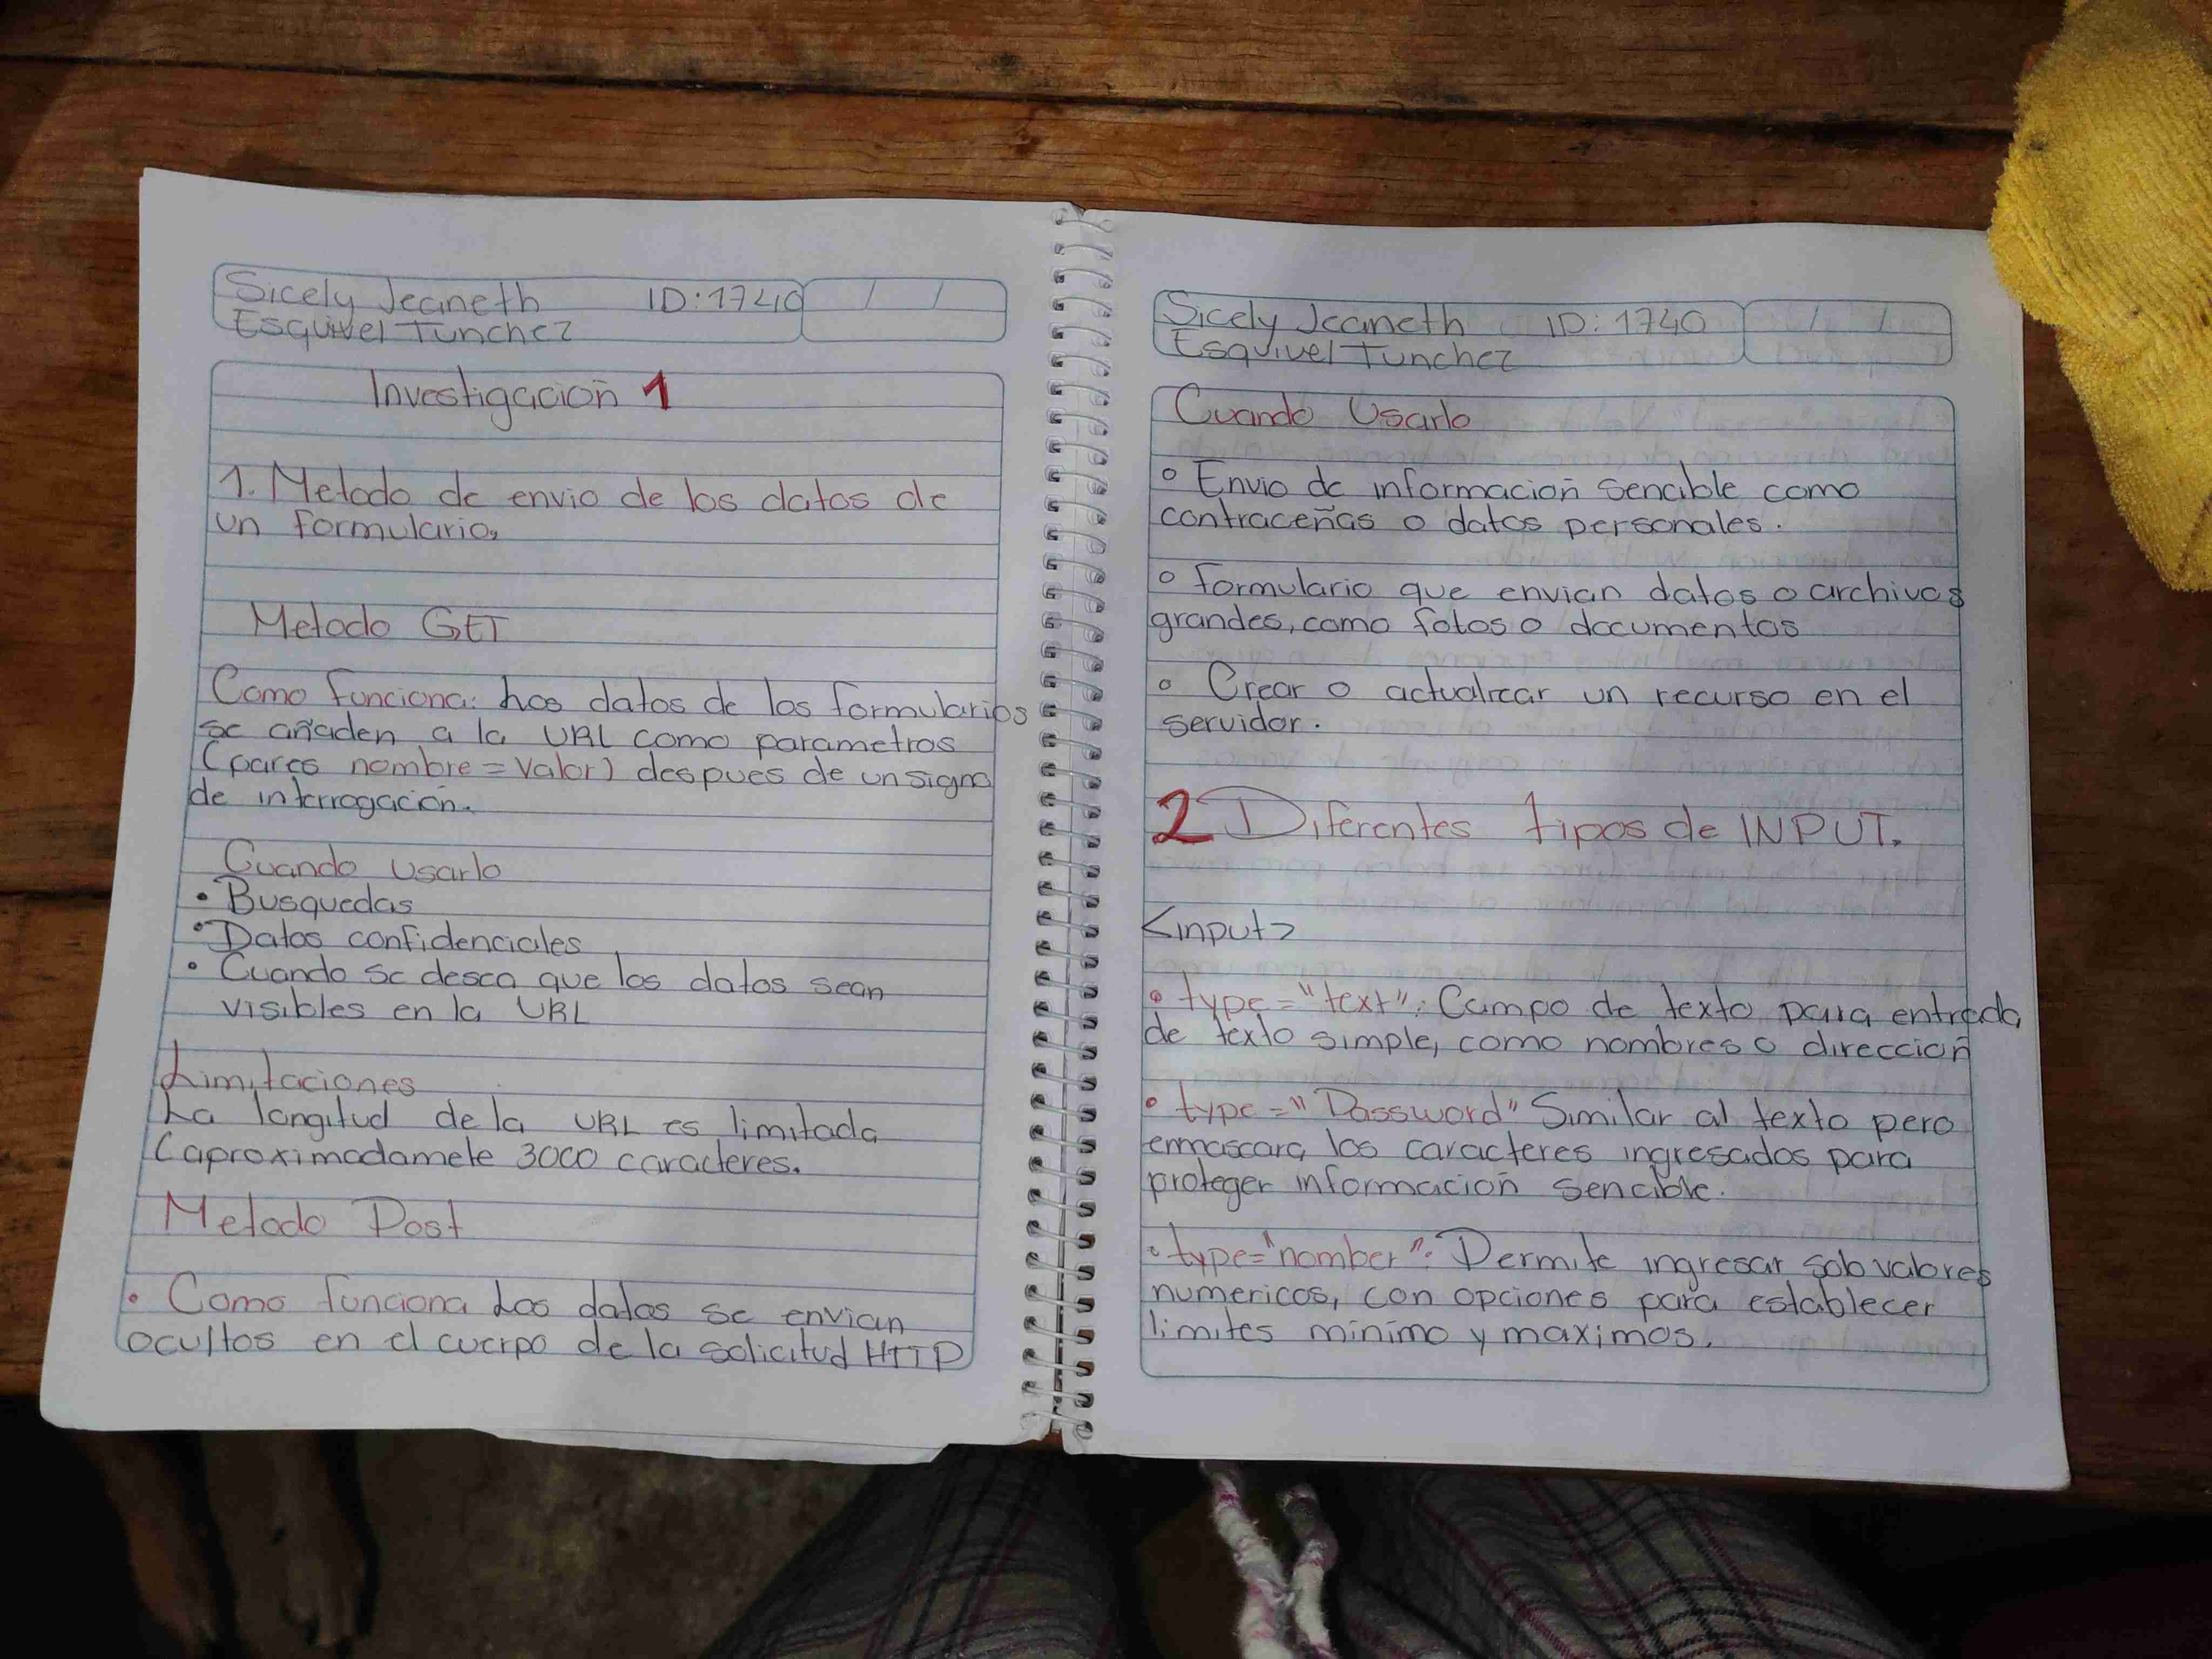 Sicely Jeaneth ID:1740
Esquivel Tunchez
Investigacioñ 1
1. Metodo de envio de los datos de
un formulario,
Metodo GET
Como funciona: Los datos de los formularios
se añaden a la URL como parametros
(pares nombre = valor) despues de un signo
de interrogación.
Cuando usarlo
• Busquedas
• Datos confidenciales
• Cuando se desea que los datos sean
visibles en la URL
Limitaciones
La longitud de la URL es limitada
(aproximadamete 3000 caracteres.
Metodo Post
• Como funciona Los datos se envian
ocultos en el cuerpo de la solicitud HTTP
Sicely Jeaneth ID: 1740
Esquivel Tunchez
Cuando Usarlo
○ Envio de informacioñ sencible como
contraceñas o datos personales.
○ formulario que envian datos o archivos
grandes, como fotos o documentos
○ Crear o actualizar un recurso en el
servidor.
2 Diferentes tipos de INPUT.
<input>
• type="text": Campo de texto para entrada
de texto simple, como nombres o direccioñ
• type="Password" Similar al texto pero
enmascara los caracteres ingresados para
proteger informacioñ sencible.
• type="nomber": Permite ingresar solo valores
numericos, con opciones para establecer
limites minimo y maximos.